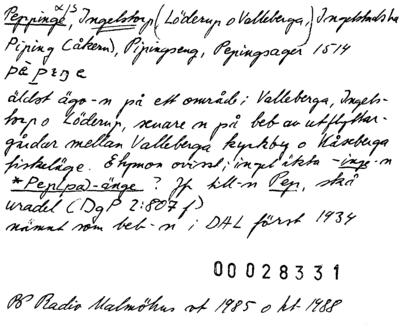 Peppinge α/s, Ingelstorp (Löderup o Valleberga,) Ingelstads hd
Piping (åkern), Pipingseng, Pepingsager 1514
äldst ägo-n på ett område i Valleberga, Ingels-
torp o Löderup, senare n på beb av utflyttar-
gårdar mellan Valleberga kyrkby o Kåseberga
fiskeläge. Etymon ovisst; inget äkta -inge-n
*Pep(pa)-änge? Jf till-n Pep, skå
uradel (DgP 2:807 f)
nämnt som beb-n i DAL först 1934
00028331
PP Radio Malmöhus vt 1985 o ht 1988